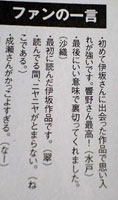 ファンの一言
・初めて伊坂さんに出会った作品で思い入
れが強いです。響野さん最高!(水戸)
・最後にいい意味で裏切ってくれました。
(沙織)
・最初に読んだ伊坂作品です。(翠)
・読んでる間、ニヤニヤがとまらない。(ね
こである。)
・成瀬さんがかっこよすぎる。(なー)